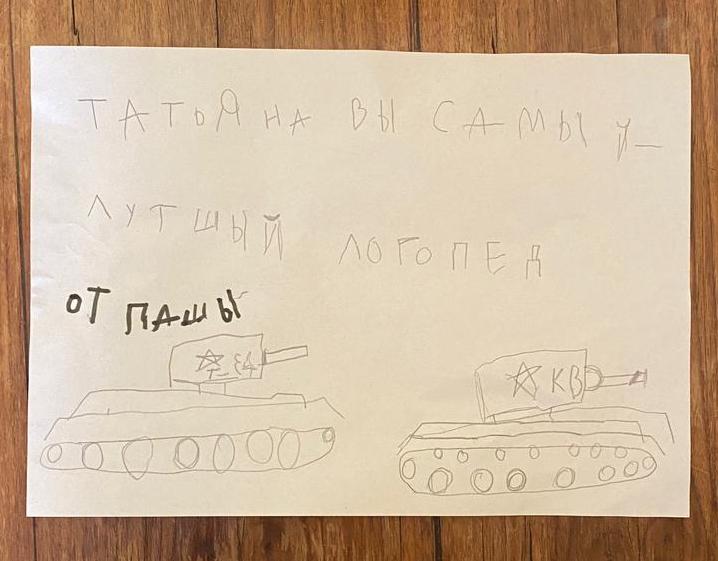 ТАТЬЯНА ВЫ САМЫЙ
ЛУТШЫЙ ЛОГОПЕД
ОТ ПАШЫ
КВ